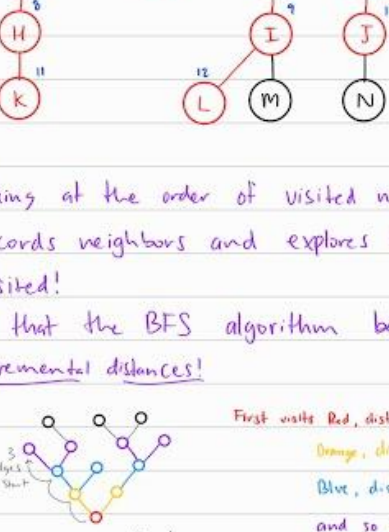 8
9
H
I
J
11
12
K
L
M
N
ing at the order of visited n
cords neighbors and explores
sited!
that the BFS algorithm be
remental distances!
First visits Red, dist
3
dges
start
Orange, di
Blue, dis
and so